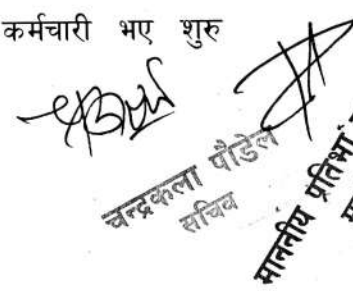 कर्मचारी भए शुरु
चन्द्रकला पौडेल
सचिव
माननीय